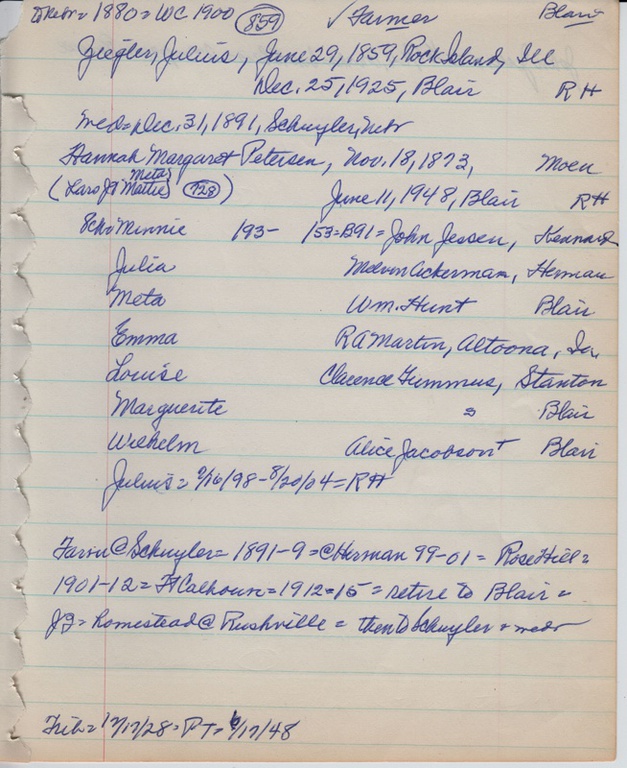 toNebr = 1880 = WC 1900 (859) √ Farmer Blair
Ziegler, Julius, June 29, 1859, Rock Island, Ill
Dec. 25, 1925, Blair RH
med = Dec. 31, 1891, Schuyler, Nebr
Hannah Margaret Petersen, Nov. 18, 1873, Moen
(Lars J & Mattie Meta (728)) June 11, 1948, Blair RH
Minnie 193- 153=B91= John Jessen, Kennard
Julia Melvin Ackerman, Herman
Meta Wm. Hunt Blair
Emma RA Martin, Altoona, Ia.
Louise Clarence Tummus, Stanton
Marguerite s Blair
Wilhelm Alice Jacobson+ Blair
Julius = 9/16/98 - 8/20/04 = RH
Farm @ Schuyler = 1891-9 = @ Herman 99-01 = Rose Hill =
1901-12 = Ft Calhoun = 1912-15 = retire to Blair =
JZ = homestead @ Rushville = then to Schuyler & med
Trib = 12/17/28 = PT = 6/17/48